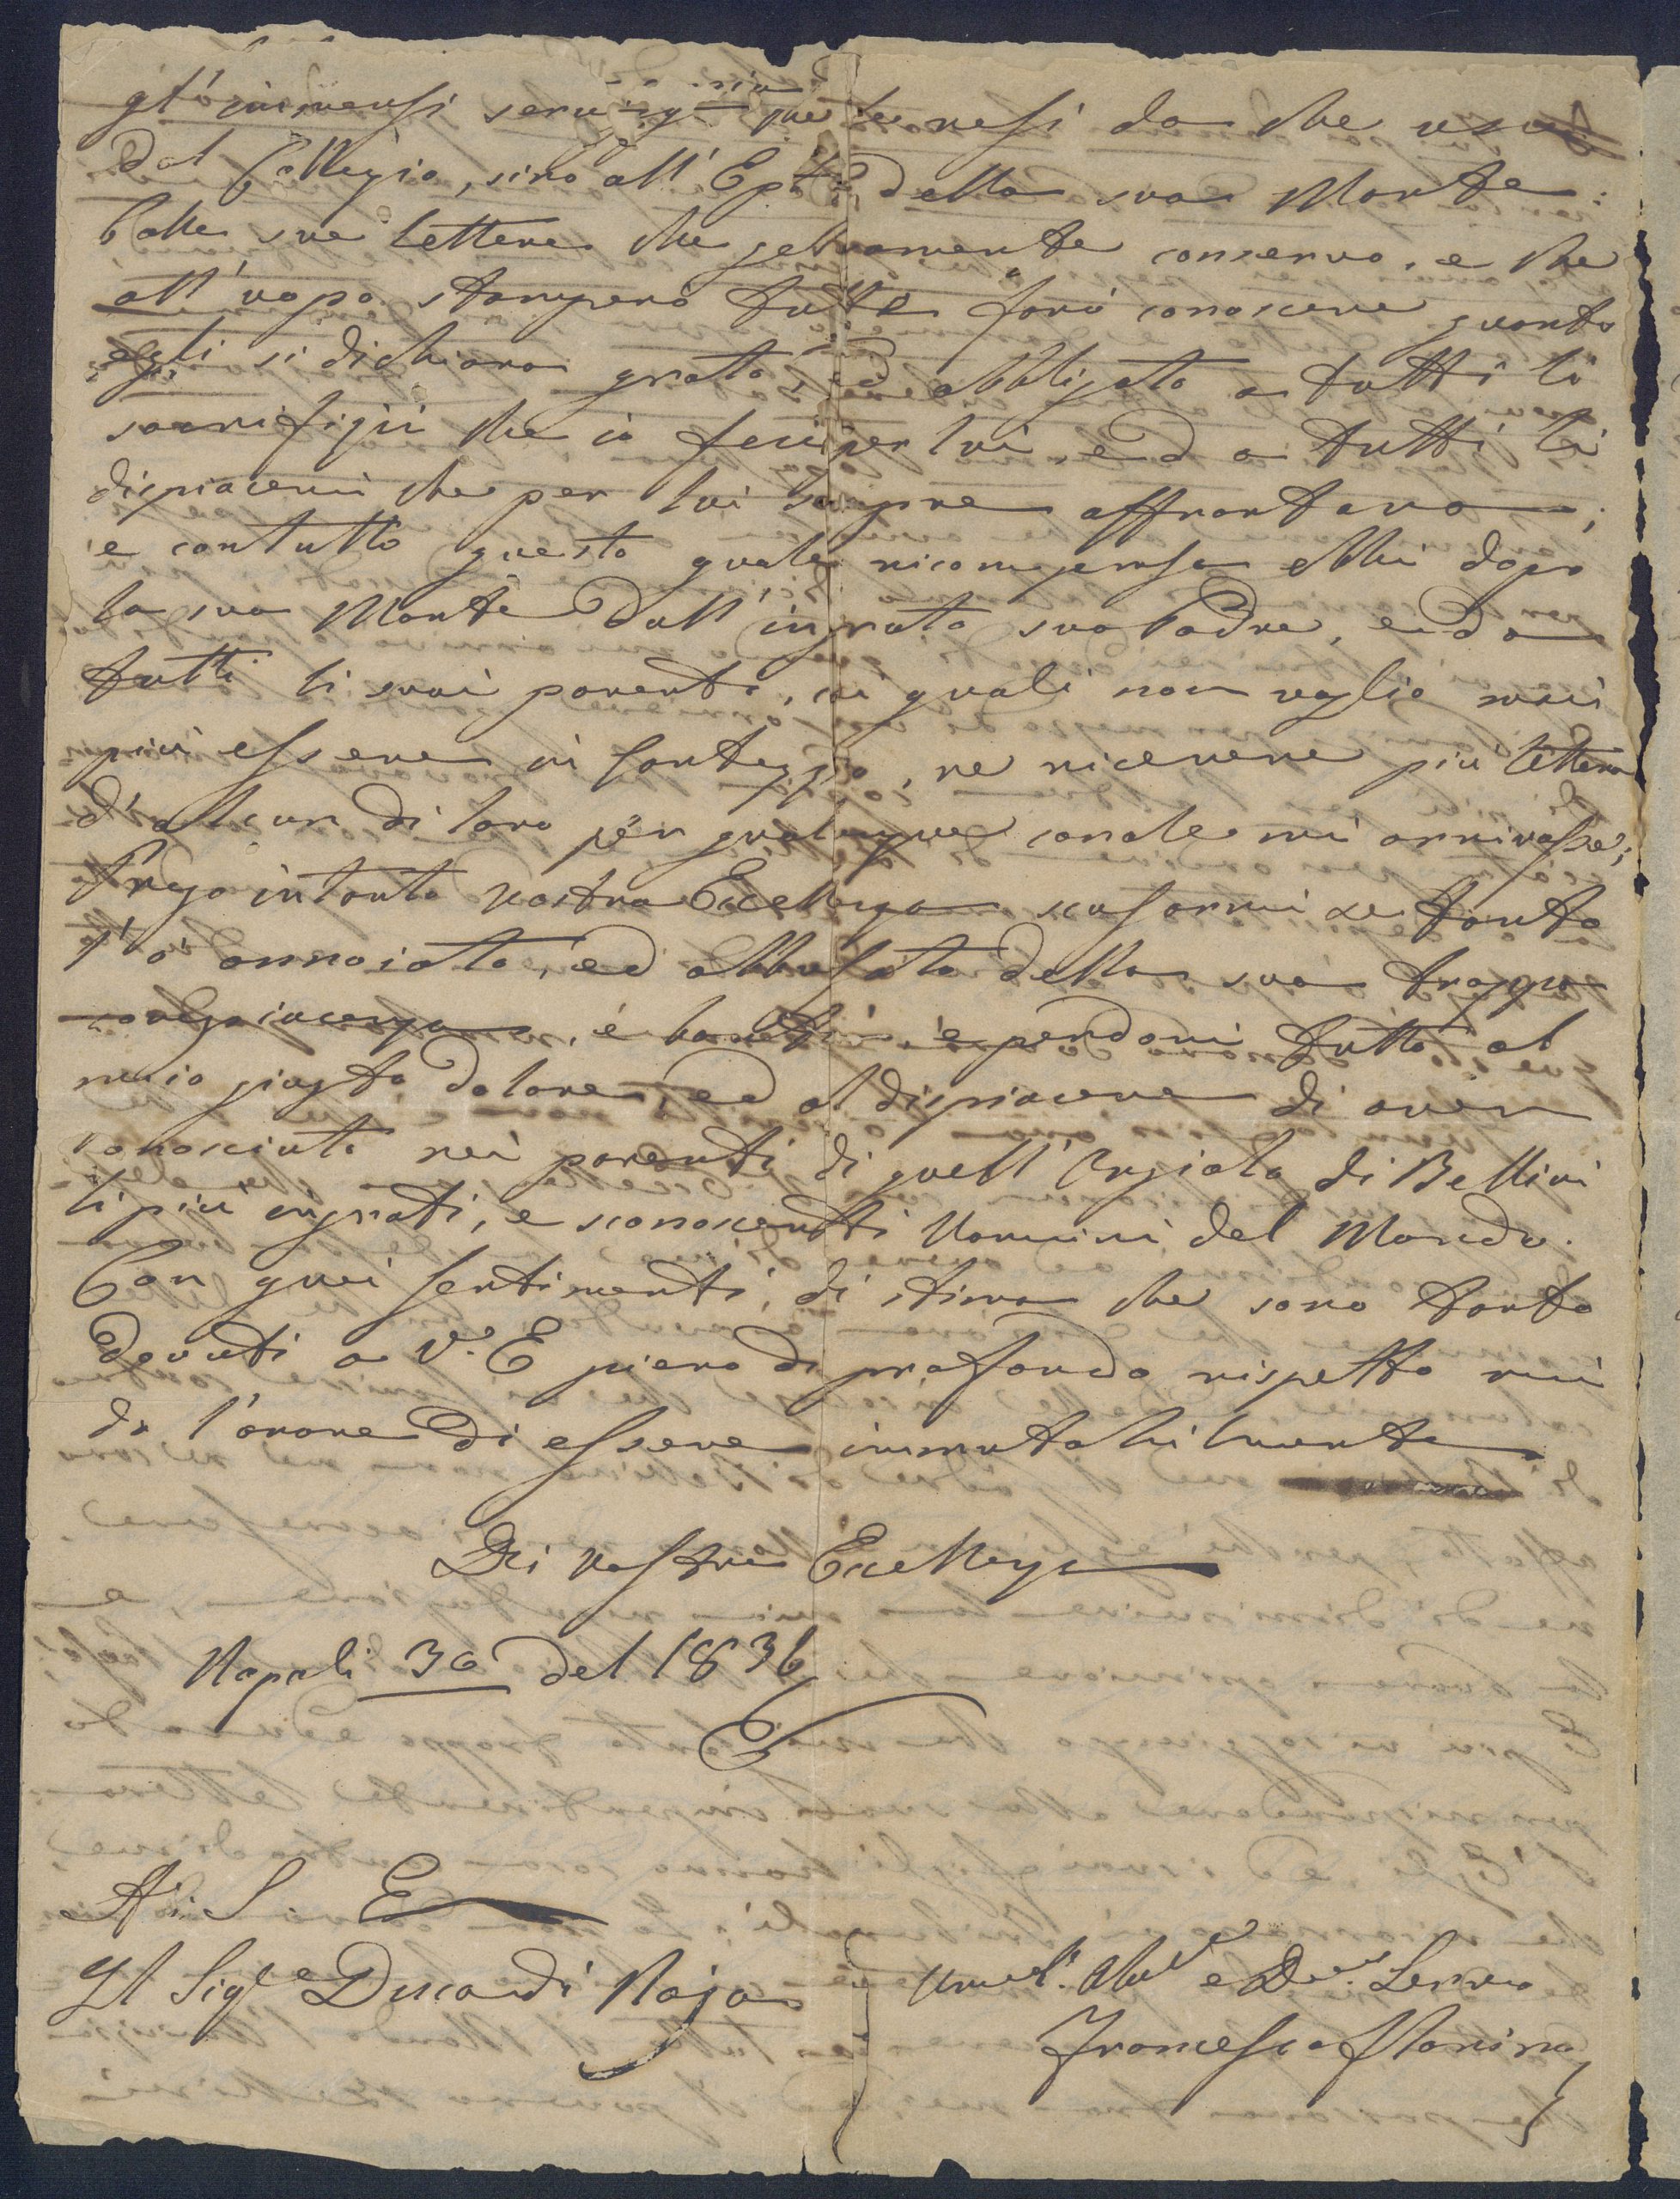 gl'immensi servigi che li resi da che uscì
dal Collegio, sino all'Ep.ca della sua Morte:
Colle sue lettere che gelosamente conservo, e che
all'uopo stamperò tutte farò conoscere quanto
egli si dichiara grato, ed obbligato a tutti li
sacrifizii che io feci per lui, ed a tutti li
dispiaceri che per lui sempre affrontavo;
e contutto questo quale ricompensa ebbi dopo
la sua Morte Dall'ingrato suo Padre, e da
tutti li suoi parenti, coi quali non voglio mai
più essere in Carteggio, ne ricevere più lettera
d'alcun di loro per qualunque canale mi arrivasse;
Prego intanto Vostra Eccellenza scusarmi se tanto
l'ò annoiata, ed abbusato della sua troppa
compiacenza, e bontà, e perdoni tutto al
mio giusto dolore, ed al dispiacere di aver
conosciuto nei parenti di quell'Angiolo di Bellini
li più ingrati, e sconoscenti Uomini del Mondo.
Con quei sentimenti, di stima che sono tanto
dovuti a V. E pieno di profondo rispetto mi
do l'onore Di essere immutabilmente
Di Vostra Eccellenza
Napoli 30 del 1836
A S. E
Il Sig.e Duca di Noja
Umil. Ubb.e e Dev. Servo
Francesco Florimo